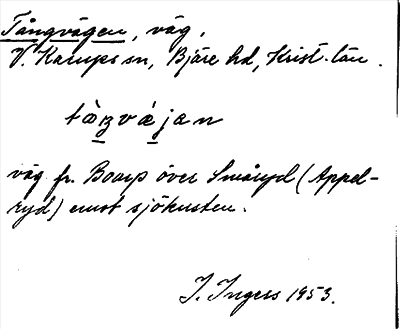 Tångvägen, väg,
V. Karups sn, Bjäre hd, Krist. län.
väg fr. Boarp över Småryd (Appel-
ryd) emot sjökusten.
I. Ingers 1953.